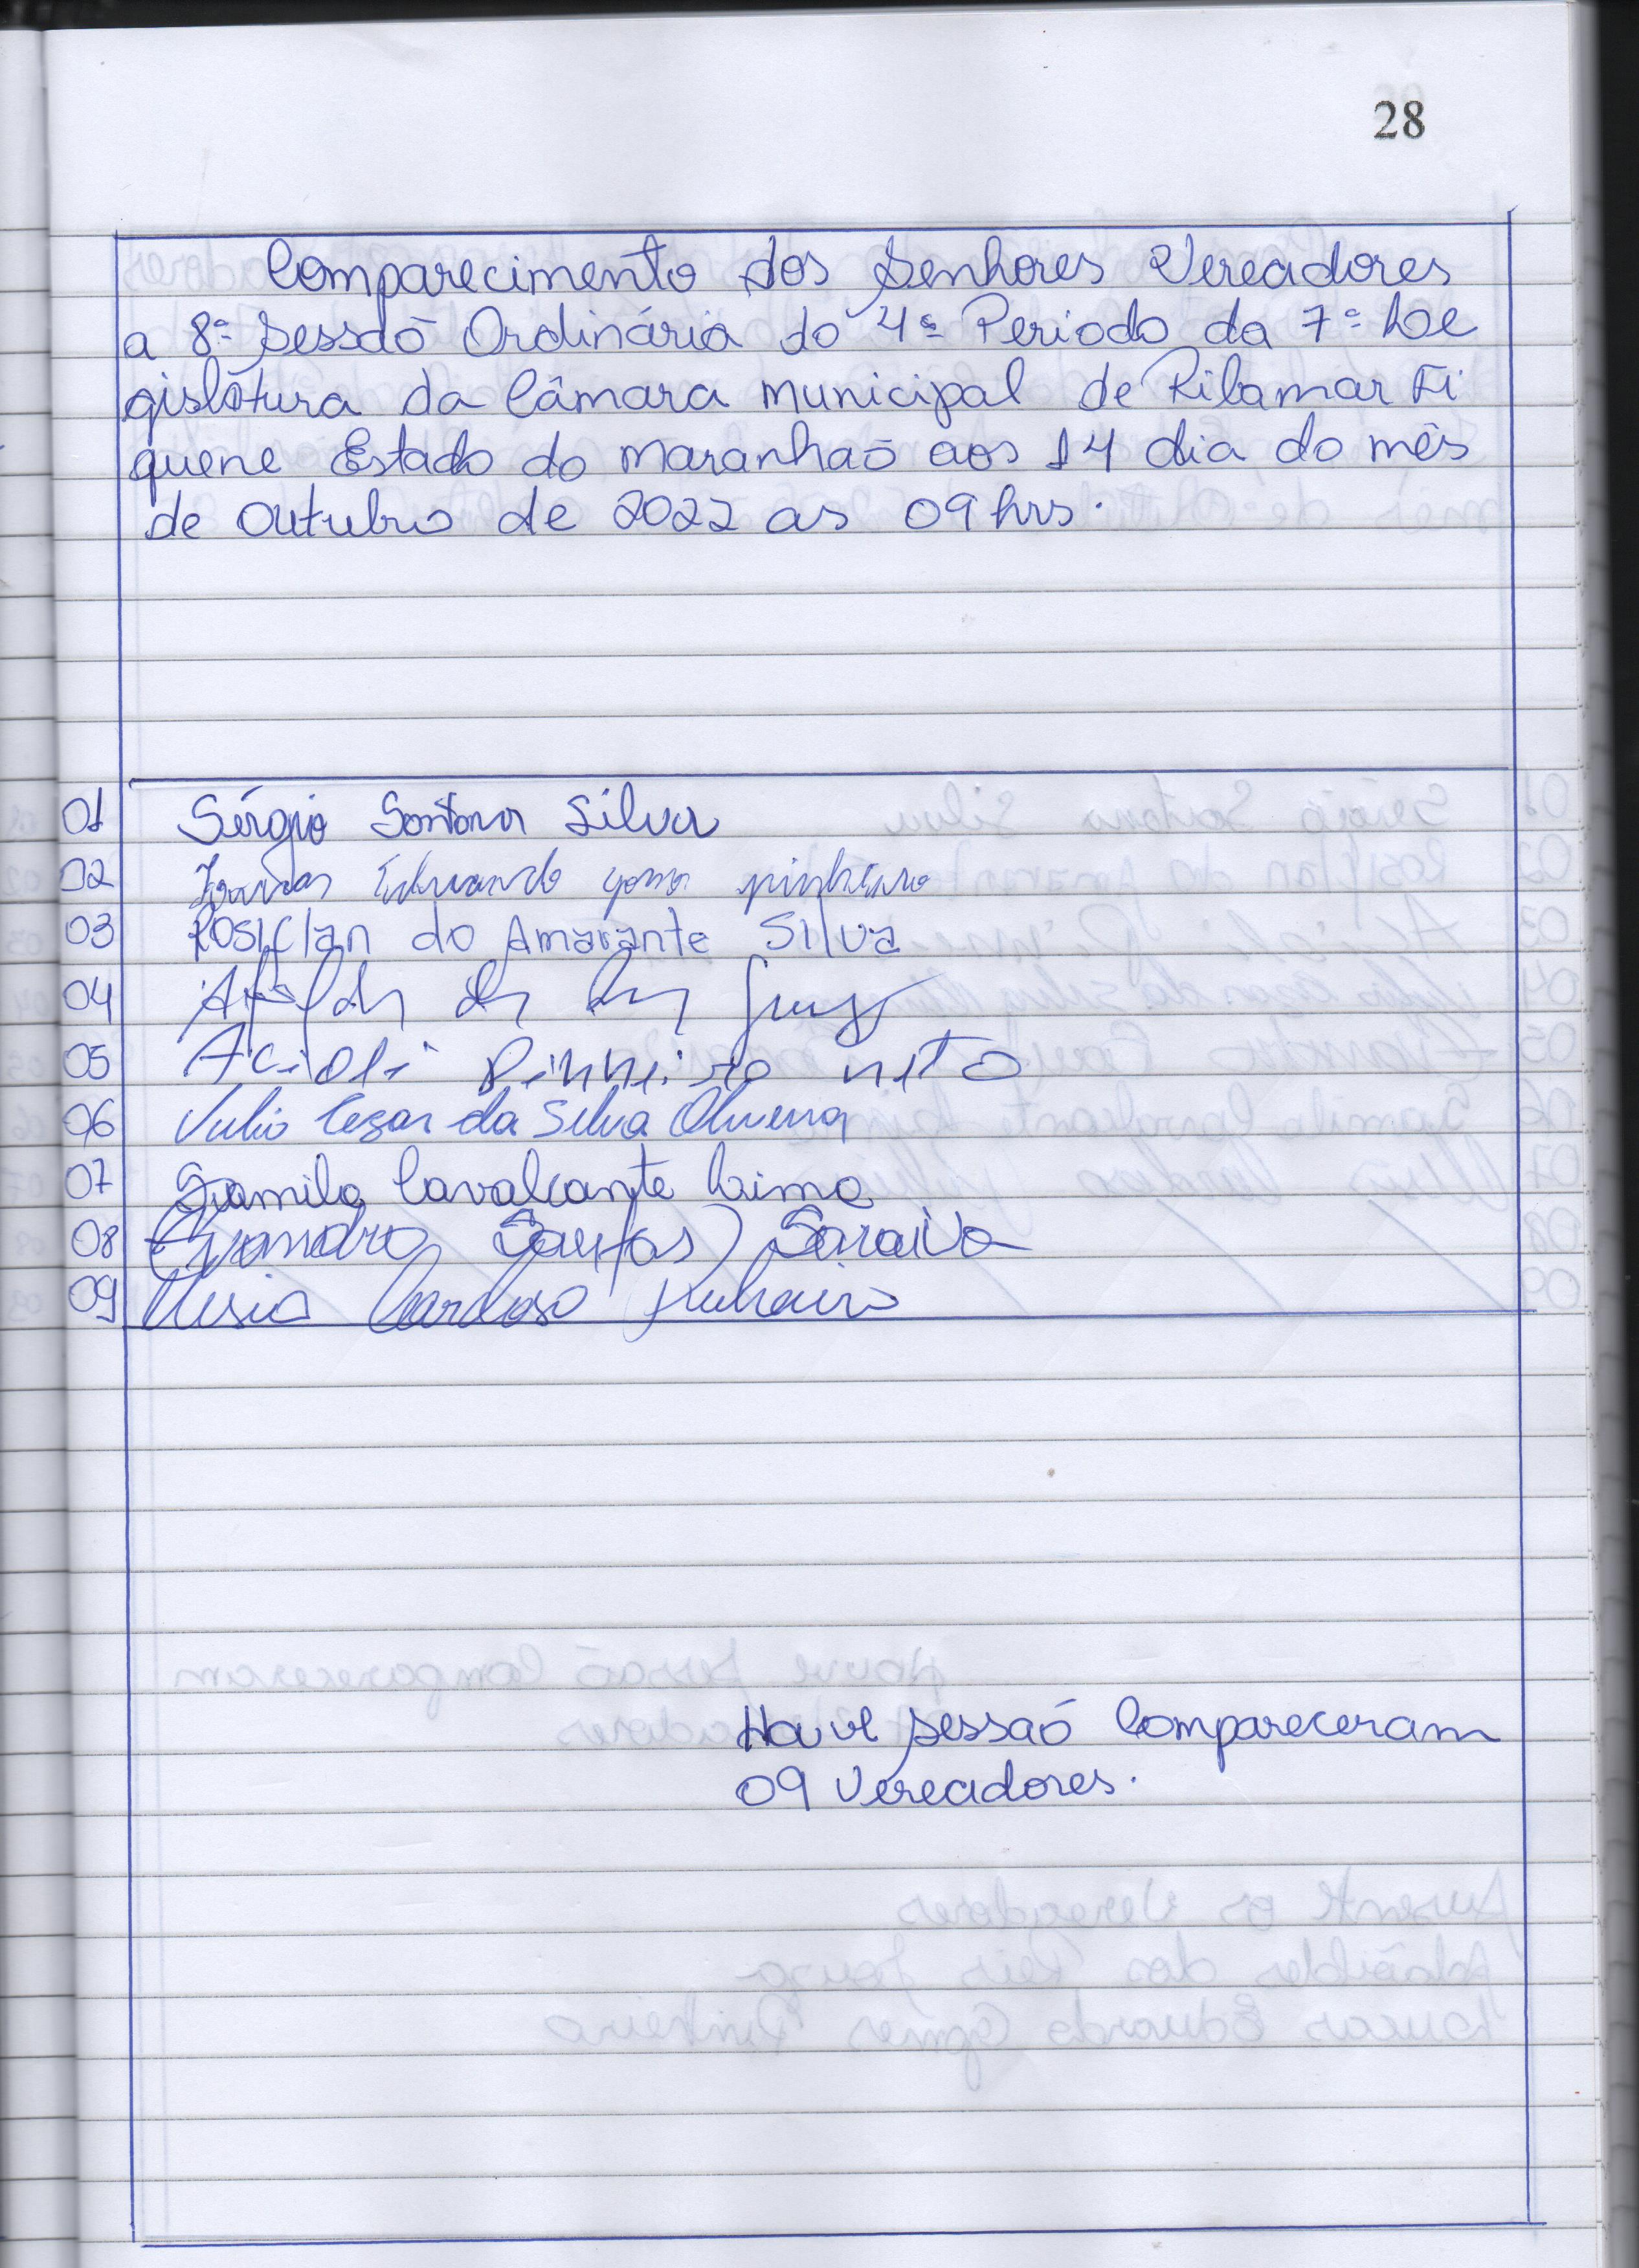 28
Comparecimento dos Senhores Vereadores
a 8ª Sessão Ordinária do 4º Periodo da 7ª Le
gislatura da Câmara Municipal de Ribamar Fi
quene Estado do Maranhão aos 14 dia do mês
de Outubro de 2022 as 09 hrs.
01 Sérgio Santana Silva
02 Eduardo pinheiro
03 Rosiclan do Amarante Silva
04
05 Acioli Pinheiro neto
06 Julio Cezar da Silva Oliveira
07 Samila Cavalcante Lima
08 Evandro Santos Saraiva
09 Cardoso
Houve sessão Compareceram
09 Vereadores.